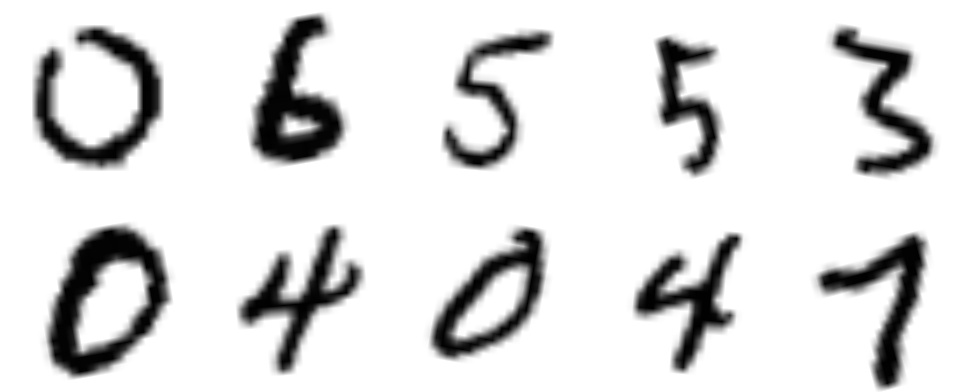 0 6 5 5 3
0 4 0 4 7